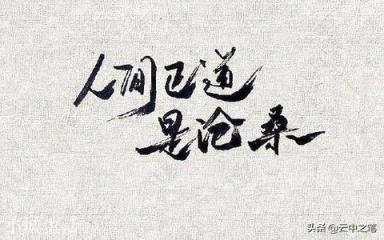 人间已道
是沧桑
头条@云中之笔